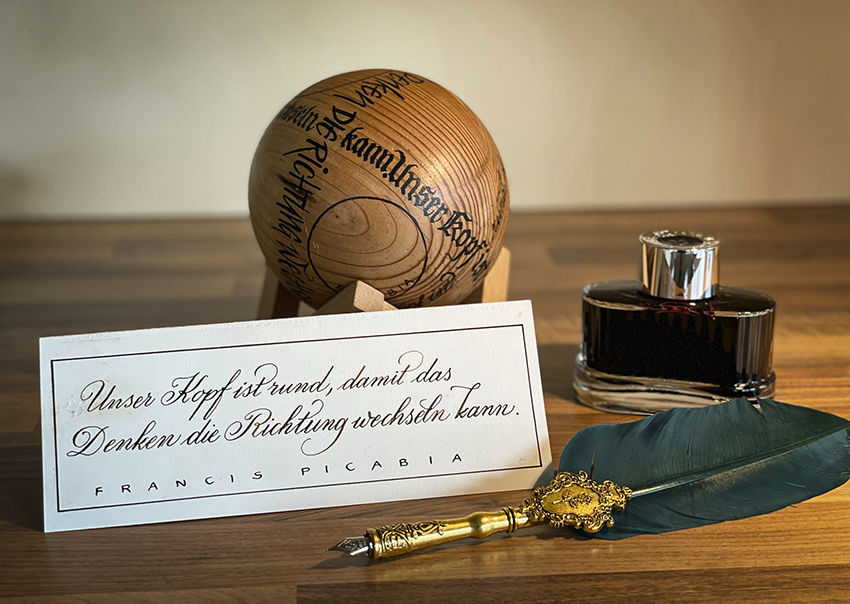 Denken
wechseln DIE RICHTUNG
kann. Unser Kopf
Unser Kopf ist rund, damit das
Denken die Richtung wechseln kann.
FRANCIS PICABIA